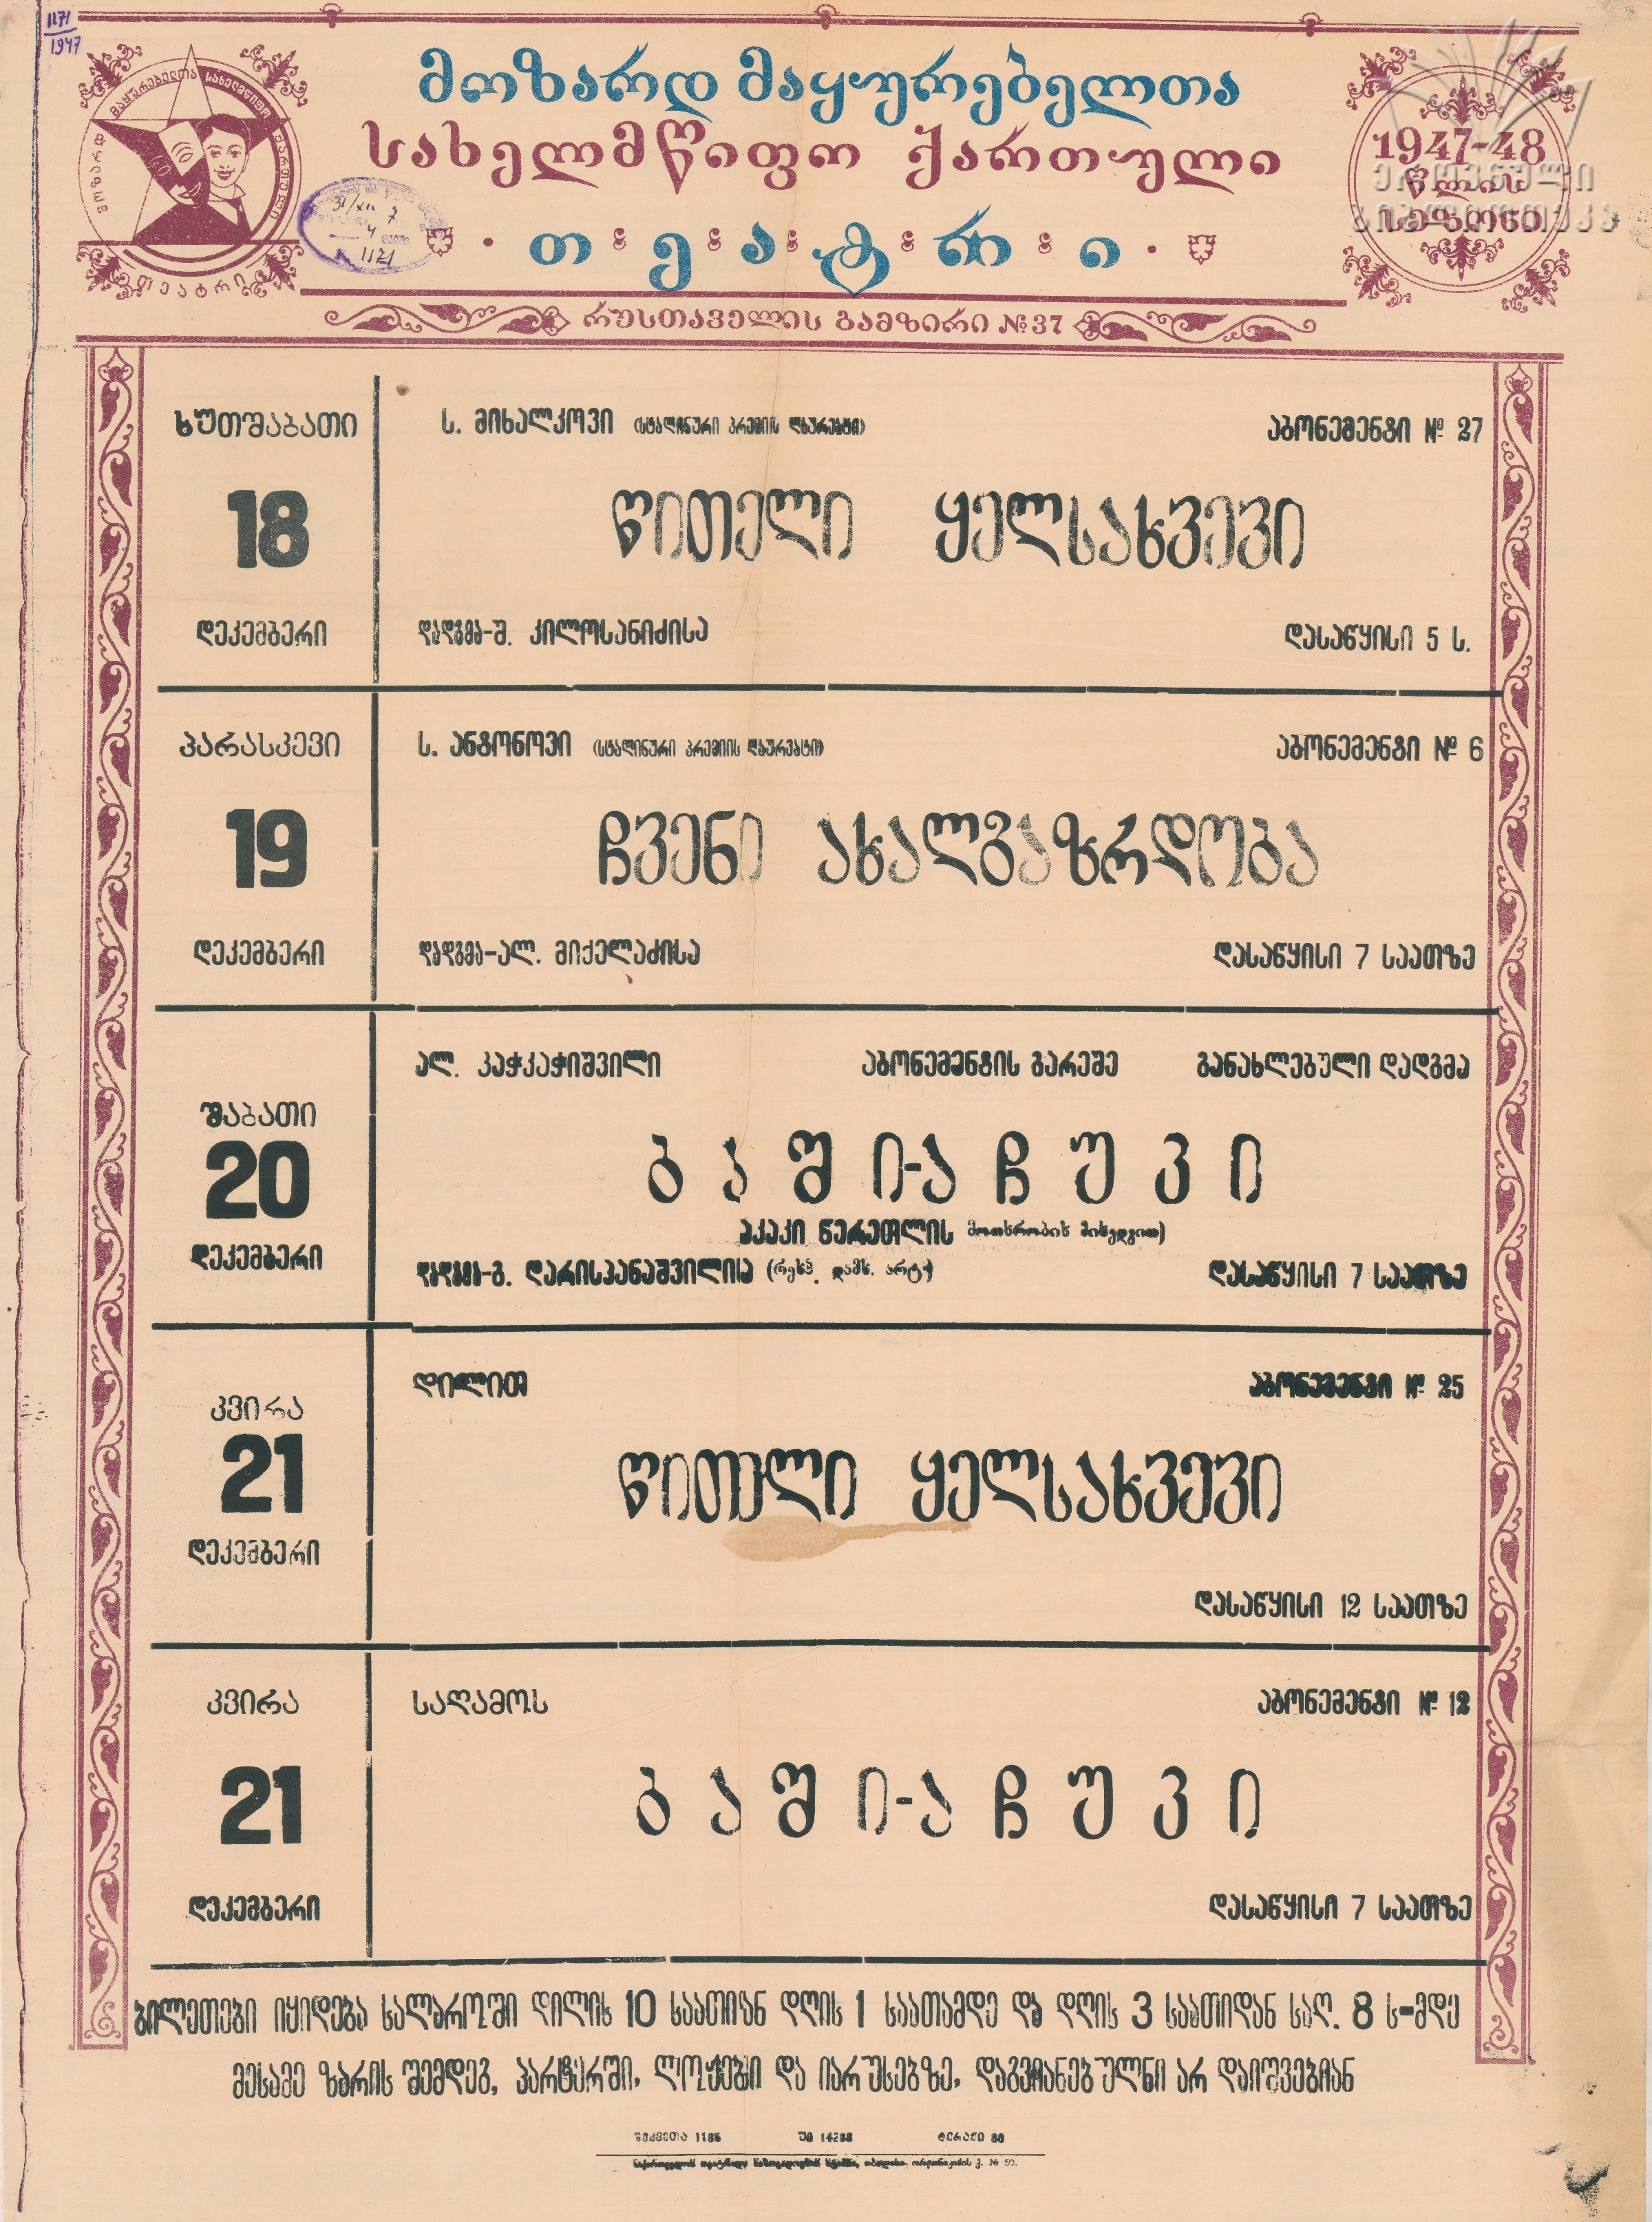 1171
1947
მოზარდ მაყურებელთა სახელმწიფო ქართული
თეატრი
მოზარდ მაყურებელთა
სახელმწიფო ქართული
თეატრი
1947-48
წლის
სეზონი
ეროვნული
ბიბლიოთეკა
31/XII 7
4
1171
რუსთაველის გამზირი № 37
ხუთშაბათი
18
დეკემბერი
ს. მიხალკოვი (სტალინური პრემიის ლაურეატი)
აბონემენტი № 27
წითელი ყელსახვევი
დადგმა-შ. კილოსანიძისა
დასაწყისი 5 ს.
პარასკევი
19
დეკემბერი
ს. ანტონოვი (სტალინური პრემიის ლაურეატი)
აბონემენტი № 6
ჩვენი ახალგაზრდობა
დადგმა-ალ. მიქელაძისა
დასაწყისი 7 საათზე
შაბათი
20
დეკემბერი
ალ. კაჭკაჭიშვილი
აბონემენტის გარეშე
განახლებული დადგმა
ბაში-აჩუკი
აკაკი წერეთლის მოთხრობის მიხედვით)
დადგმა-გ. დარისპანაშვილისა (რესპ. დამს. არტ.)
დასაწყისი 7 საათზე
კვირა
21
დეკემბერი
დილით
აბონემენტი № 25
წითელი ყელსახვევი
დასაწყისი 12 საათზე
კვირა
21
დეკემბერი
საღამოს
აბონემენტი № 12
ბაში-აჩუკი
დასაწყისი 7 საათზე
ბილეთები იყიდება სალაროში დილის 10 საათიდან დღის 1 საათამდე და დღის 3 საათიდან საღ. 8 ს-მდე
მესამე ზარის შემდეგ, პარტერში, ლოჟებში და იარუსებზე, დაგვიანებულნი არ დაიშვებიან
შეკვეთა 1185 უე 14288 ტირაჟი 80